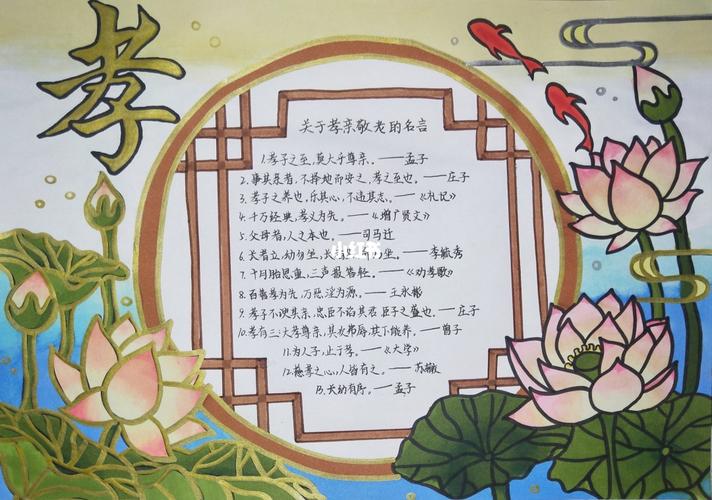 孝
关于孝亲敬老的名言
1.孝子之至,莫大乎尊亲。——孟子
2.事其亲者,不择地而安之,孝之至也。——庄子
3.孝子之养也,乐其心,不违其志。——《礼记》
4.千万经典,孝义为先。——《增广贤文》
5.父母者,人之本也。——司马迁
6.长者立,幼勿坐,长 坐。——李毓秀
7.十月胎恩重,三声报答轻。——《劝孝歌》
8.百善孝为先,万恶淫为源。——王永彬
9.孝子不谀其亲,忠臣不谄其君,臣子之盛也。——庄子
10.孝有三:大孝尊亲,其次弗辱,其下能养。——曾子
11.为人子,止于孝。——《大学》
12.慈孝之心,人皆有之。——苏辙
13.长幼有序。——孟子
小红书